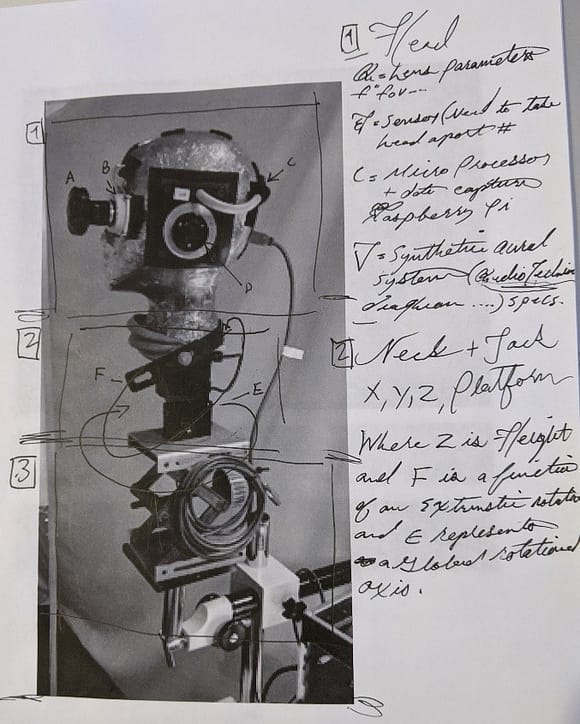 1 Head
= Lens parameters
f° fov---
= Sensor (Need to take
head apart #
C = Micro Processor
+ data capture
Raspberry Pi
= Synthetic aural
system (audio Technica
diaghram ....) specs.
2 Neck + Jack
X, Y, Z, Platform
Where Z is Height
and F is a function
of an Extrinsic rotation
and E represents
a Global rotational
axis.
1
A
B
C
D
2
F
E
3